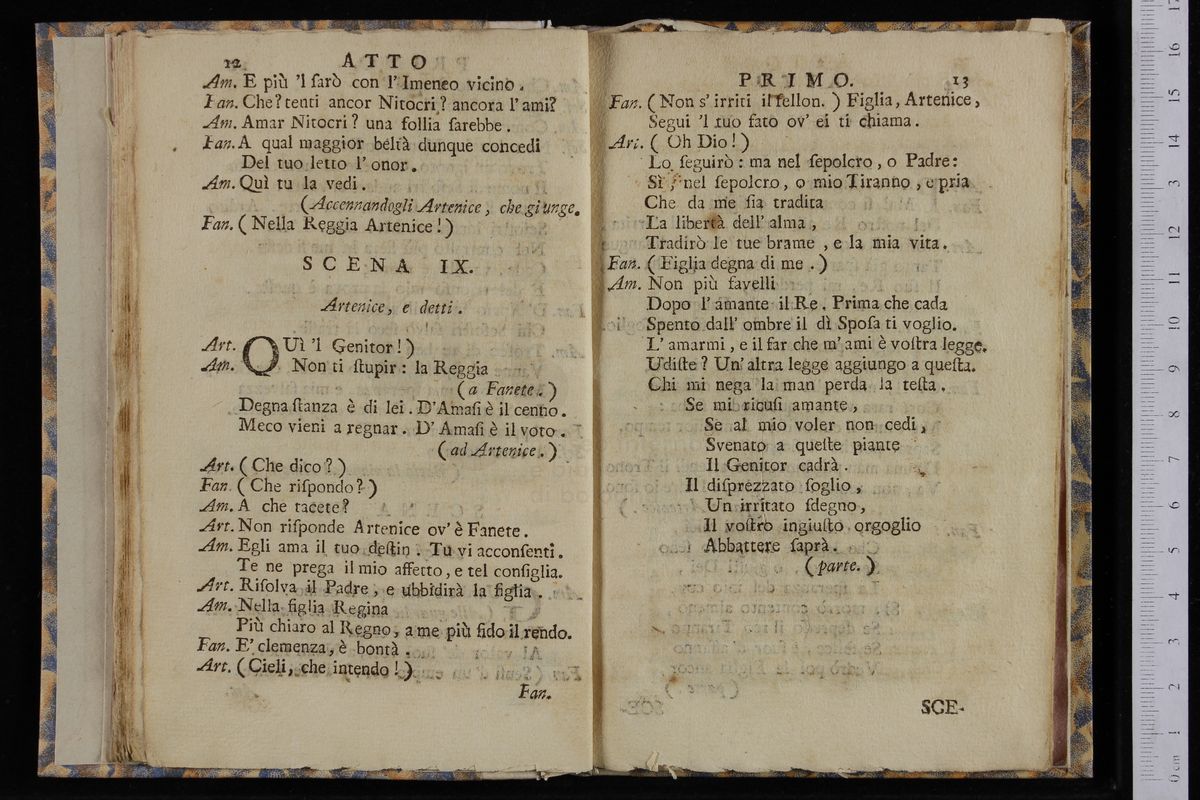 12 ATTO
Am. E più 'l ſarò con l' Imeneo vicino.
Fan. Che? tenti ancor Nitocri? ancora l' ami?
Am. Amar Nitocri? una follia ſarebbe.
Fan. A qual maggior beltà dunque concedi
Del tuo letto l' onor.
Am. Quì tu la vedi.
(Accennandogli Artenice, che giunge.
Fan. (Nella Reggia Artenice!)
SCENA IX.
Artenice, e detti.
Art. QUì 'l Genitor!)
Am. Non ti ſtupir: la Reggia
(a Fanete.)
Degna ſtanza è di lei. D'Amaſi è il cenno.
Meco vieni a regnar. D' Amaſi è il voto.
(ad Artenice.)
Art. (Che dico?)
Fan. (Che riſpondo?)
Am. A che tacete?
Art. Non riſponde Artenice ov' è Fanete.
Am. Egli ama il tuo deſtin. Tu vi acconſenti.
Te ne prega il mio affetto, e tel conſiglia.
Art. Riſolva il Padre, e ubbidirà la figlia.
Am. Nella figlia Regina
Più chiaro al Regno, a me più fido il rendo.
Fan. E' clemenza, è bontà.
Art. (Cieli, che intendo!)
Fan.
PRIMO. 13
Fan. (Non s' irriti il fellon.) Figlia, Artenice,
Segui 'l tuo fato ov' ei ti chiama.
Art. (Oh Dio!)
Lo ſeguirò: ma nel ſepolcro, o Padre:
Sì, nel ſepolcro, o mio Tiranno, e pria
Che da me ſia tradita
La libertà dell' alma,
Tradirò le tue brame, e la mia vita.
Fan. (Figlia degna di me.)
Am. Non più favelli
Dopo l' amante il Re. Prima che cada
Spento dall' ombre il dì Spoſa ti voglio.
L' amarmi, e il far che m' ami è voſtra legge.
Udiſte? Un' altra legge aggiungo a queſta.
Chi mi nega la man perda la teſta.
Se mi ricuſi amante,
Se al mio voler non cedi,
Svenato a queſte piante
Il Genitor cadrà.
Il diſprezzato ſoglio,
Un irritato ſdegno,
Il voſtro ingiuſto orgoglio
Abbattere ſaprà.
(parte.)
SCE-